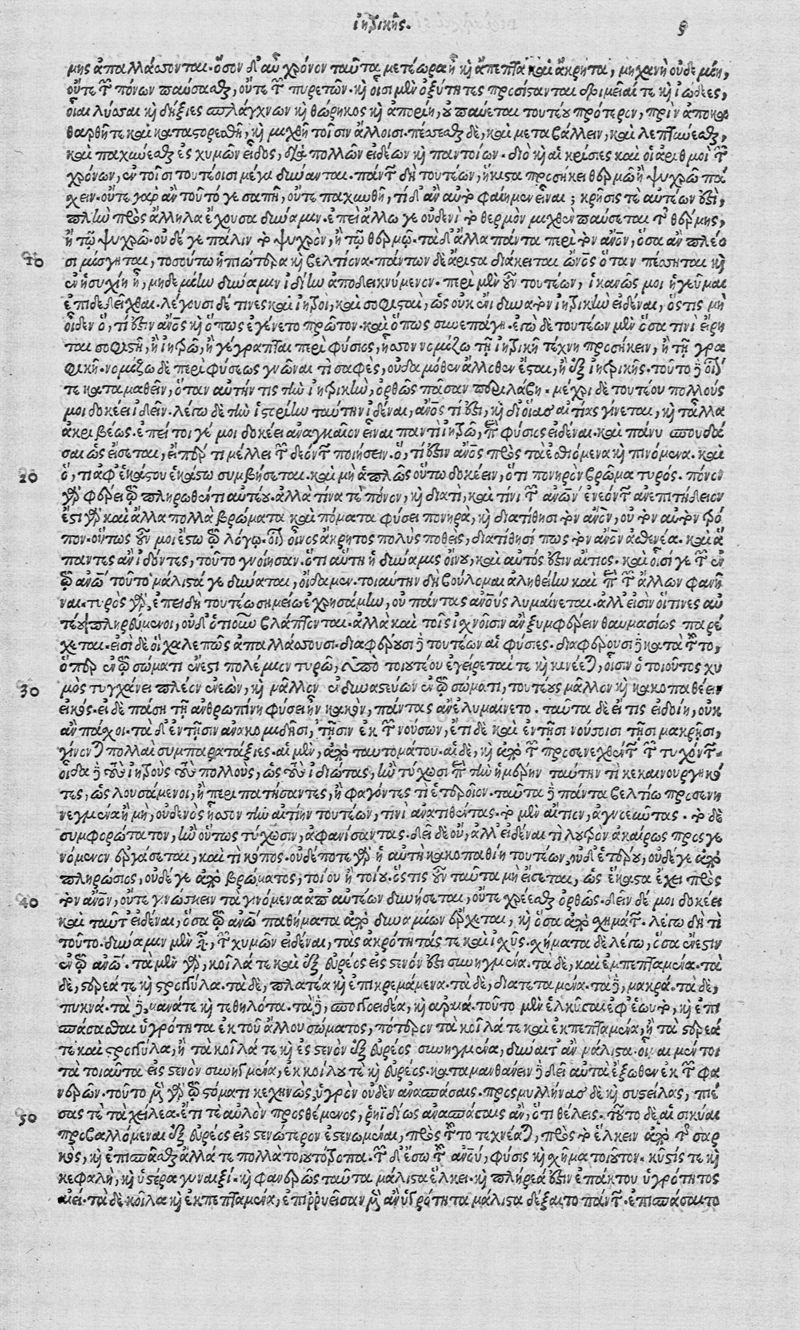 ἰητρικῆς. 5
μης ἀπαλλάσσονται. ὅσον δ' ἂν χρόνον ταῦτα μετέωρα ᾖ καὶ ἄπεπτα καὶ ἄκρητα, μηχανὴ οὐδεμίη,
οὔτε τῶν πόνων παύσασθαι, οὔτε τῶν πυρετῶν. καὶ οἷσι μὲν ὀξύτητες προσίστανται δριμεῖαί τε καὶ ἰώδεες,
οἷαι λύσσαι καὶ δήξιες σπλάγχνων καὶ θώρηκος καὶ ἀπορίη, οὐ παύεται τουτέου πρότερον, πρὶν ἢ ἀποκα
θαρθῇ τε καὶ καταστορεσθῇ, καὶ μιχθῇ τοῖσιν ἄλλοισι. πέσσεσθαι δὲ, καὶ μεταβάλλειν, καὶ λεπτύνεσθαι,
καὶ παχύνεσθαι ἐς χυμῶν εἶδος, διὰ πολλῶν εἰδέων καὶ παντοίων. διὸ καὶ αἱ κρίσιες καὶ οἱ ἀριθμοὶ τῶν
χρόνων, ἐν τοῖσι τουτέοισι μέγα δύνανται. πάντων δὴ τουτέων, ἥκιστα προσήκει θερμῷ ἢ ψυχρῷ πά
σχειν. οὔτε γὰρ ἂν τοῦτό γε σαπῇ, οὔτε παχυνθῇ, τί δ' ἂν αὐτὸ φαίημεν εἶναι; κρήσις τε αὐτέων ἐστὶ,
πλὴν πρὸς ἄλληλα ἔχουσα δύναμιν. ἐπεὶ ἄλλῳ γε οὐδενὶ τὸ θερμὸν μιχθὲν παύσεται τῆς θέρμης,
ἢ τῷ ψυχρῷ. οὐδέ γε πάλιν τὸ ψυχρὸν, ἢ τῷ θερμῷ. τὰ δ' ἄλλα πάντα περὶ τὸν ἄνθρωπον, ὅσα ἂν πλέο
10 σι μίσγηται, τοσούτῳ ἠπιώτερα καὶ βελτίονα. πάντων δὲ ἄριστα διάκειται ὥνθρωπος ὅταν πέσσηται καὶ
ἐν ἡσυχίῃ ᾖ, μηδεμίην δύναμιν ἰδίην ἀποδεικνύμενον. περὶ μὲν οὖν τουτέων, ἱκανῶς μοι ἡγεῦμαι
ἐπιδεδεῖχθαι. λέγουσι δέ τινες καὶ ἰητροὶ, καὶ σοφισταὶ, ὡς οὐκ ἔνι δυνατὸν ἰητρικὴν εἰδέναι, ὅστις μὴ
οἶδεν ὅ, τί ἐστιν ἄνθρωπος καὶ ὅπως ἐγένετο πρῶτον. καὶ ὅπως συνεπάγη. ἐγὼ δὲ τουτέων μὲν ὅσα τινὶ εἴρη
ται σοφιστῇ, ἢ ἰητρῷ, ἢ γέγραπται περὶ φύσιος, ἧσσον νομίζω τῇ ἰητρικῇ τέχνῃ προσήκειν, ἢ τῇ γρα
φικῇ. νομίζω δὲ περὶ φύσεως γνῶναί τι σαφὲς, οὐδαμόθεν ἄλλοθεν ἔσται, ἢ ἐξ ἰητρικῆς. τοῦτο δὲ οἷόν
τε καταμαθεῖν, ὅταν αὐτήν τις τὴν ἰητρικὴν, ὀρθῶς πᾶσαν περιλάβῃ. μέχρι δὲ τουτέου πολλοῦς
μοι δοκέει ἰδεῖν. λέγω δὲ τὴν ἱστορίην ταύτην ἰδέναι, ἄνθρωπος τί ἐστι, καὶ δι' οἵας αἰτίας γίνεται, καὶ τἄλλα
ἀκριβέως. ἐπεί τοί γέ μοι δοκέει ἀναγκαῖον εἶναι παντὶ ἰητρῷ, περὶ φύσιος εἰδέναι. καὶ πάνυ σπουδά
σαι ὡς εἴσεται, εἴπερ τι μέλλει τῶν δεόντων ποιήσειν. ὅ, τί ἐστιν ἄνθρωπος πρὸς τὰ ἐσθιόμενα καὶ πινόμενα. καὶ
20 ὅ, τι ἀφ' ἑκάστου ἑκάστῳ συμβήσεται. καὶ μὴ ἁπλῶς οὕτω δοκέειν, ὅτι πονηρὸν βρῶμα τυρός. πόνον
γὰρ φέρει τῷ πληρωθέντι αὐτέου. ἀλλὰ τίνα τε πόνον, καὶ διατί, καὶ τίνι τῶν ἀνθρώπων ἐνεόντων ἀνεπιτήδειον
ἐστὶ γὰρ καὶ ἄλλα πολλὰ βρώματα καὶ πόματα φύσει πονηρὰ, καὶ διατίθησι τὸν ἄνθρωπον, οὐ τὸν αὐτὸν τρό
πον. οὕτως οὖν μοι ἔστω τῷ λόγῳ. οἷον οἶνος ἄκρητος πολὺς ποθεὶς, διατίθησί πως τὸν ἄνθρωπον ἀσθενέα. καὶ ἅ
παντες ἂν ἰδόντες, τοῦτο γνοίησαν. ὅτι αὕτη ἡ δύναμις οἴνου, καὶ αὐτός ἐστιν αἴτιος. καὶ οἷσί γε τῶν ἐν
τῷ ἀνθρώπῳ τοῦτο μάλιστά γε δύναται, οἴδαμεν. τοιαύτην δὴ βούλομαι ἀληθείην καὶ περὶ τῶν ἄλλων φανῆ
ναι. τυρὸς γὰρ, ἐπειδὴ τουτέῳ σημείῳ ἐχρησάμην, οὐ πάντας ἀνθρώπους λυμαίνεται. ἀλλ' εἰσὶν οἵτινες αὐ
τέου πληρούμενοι, οὐδ' ὁτιοῦν βλάπτονται. ἀλλὰ καὶ τοῖς ἰχνοῖσιν ἂν ξυμφέρειν θαυμασίως παρέ
χεται. εἰσὶ δὲ οἳ χαλεπῶς ἀπαλλάσσουσι. διαφέρουσι δὲ τουτέων αἱ φύσιες. διαφέρουσι δὲ κατὰ τοῦτο,
ὅπερ ἐν τῷ σώματι ἔνεστι πολέμιον τυρῷ, ὑπὸ τοιουτέου ἐγείρεταί τε καὶ κινέεται, οἷσιν ὁ τοιοῦτος χυ
30 μὸς τυγχάνει πλέον ἐνεὼν, καὶ μᾶλλον ἐνδυναστεύων ἐν τῷ σώματι, τουτέους μᾶλλον καὶ κακοπαθέειν
εἰκός. εἰ δὲ πάσῃ τῇ ἀνθρωπίνῃ φύσει ἦν κακὸν, πάντας ἂν ἐλυμαίνετο. ταῦτα δὲ εἴ τις εἰδοίη, οὐκ
ἂν πάσχοι. τὰ δ' ἐν τῇσιν ἀνακομιδῇσι, τῇσιν ἐκ τῶν νούσων, ἔτι δὲ καὶ ἐν τῇσι νούσοισι τῇσι μακρῇσι,
γίνονται πολλαὶ συμπαρατάξιες. αἱ μὲν, ἀπὸ ταυτομάτου. αἱ δὲ, καὶ ἀπὸ τῶν προσενεχθέντων τῶν τυχόντων.
οἶδα δὲ τοὺς ἰητροὺς τοὺς πολλοὺς, ὡς τοὺς ἰδιώτας, ἢν τύχωσι περὶ τὴν ἡμέρην ταύτην τι κεκαινουργηκό
τες, ὡς λουσάμενοι, ἢ περιπατήσαντες, ἢ φαγόντες τι ἑτεροῖον. ταῦτα δὲ πάντα βελτίω προσενη
νεγμένα ἢ μὴ, οὐδενὸς ἧσσον τὴν αἰτίην τουτέων, τινὶ ἀνατιθέντας. τὸ μὲν αἴτιον, ἀγνοεῦντας. τὸ δὲ
συμφορώτατον, ἢν οὕτως τύχωσιν, ἀφανίσαντας. δεῖ δὲ οὒ, ἀλλ' εἰδέναι τί λουτρὸν ἀκαίρως προσγε
νόμενον ἐργάσεται, καὶ τί κόπος. οὐδέποτε γὰρ ἡ αὐτὴ κακοπαθίη τουτέων, οὐδ' ἑτέρου, οὐδέ γε ἀπὸ
πληρώσιος, οὐδέ γε ἀπὸ βρώματος, τοίου ἢ τοίου. ὅστις οὖν ταῦτα μὴ εἴσεται, ὡς ἕκαστα ἔχει πρὸς
40 τὸν ἄνθρωπον, οὔτε γινώσκειν τὰ γινόμενα ἀπ' αὐτέων δυνήσεται, οὔτε χρέεσθαι ὀρθῶς. δεῖν δέ μοι δοκέει
καὶ ταῦτ' εἰδέναι, ὅσα τῷ ἀνθρώπῳ παθήματα ἀπὸ δυναμίων ἔρχεται, καὶ ὅσα ἀπὸ σχημάτων. λέγω δή τι
τοῦτο. δύναμιν μὲν εἶναι, τῶν χυμῶν εἰδέναι, τὰς ἀκρότητάς τε καὶ ἰσχύς. σχήματα δὲ λέγω, ὅσα ἔνεστιν
ἐν τῷ ἀνθρώπῳ. τὰ μὲν γὰρ, κοῖλά τε καὶ ἐξ εὐρέος εἰς στενόν ἐστι συνηγμένα. τὰ δὲ, καὶ ἐκπεπταμένα. τὰ
δὲ, στερεά τε καὶ στρογγύλα. τὰ δὲ, πλατέα καὶ ἐπικρεμάμενα. τὰ δὲ, διατεταμένα. τὰ δὲ, μακρά. τὰ δὲ,
πυκνά. τὰ δὲ, μανά τε καὶ τεθηλότα. τὰ δὲ, σπογγοειδέα, καὶ ἀραιά. τοῦτο μὲν ἑλκύσαι ἐφ' ἑωυτὸ, καὶ ἐπι
σπάσασθαι ὑγρότητα ἐκ τοῦ ἄλλου σώματος, πότερον τὰ κοῖλά τε καὶ ἐκπεπταμένα, ἢ τὰ στερεά
τε καὶ στρογγύλα, ἢ τὰ κοῖλά τε καὶ ἐς στενὸν ἐξ εὐρέος συνηγμένα, δύναιτ' ἂν μάλιστα. οἶμαι μέντοι
τὰ τοιαῦτα εἰς στενὸν συνηγμένα, ἐκ κοίλου τε καὶ εὐρέος. καταμανθάνειν δὲ δεῖ αὐτὰ ἔξωθεν ἐκ τῶν φα
νερῶν. τοῦτο μὲν γὰρ τῷ στόματι κεχηνὼς, ὑγρὸν οὐδὲν ἀνασπάσαις. προσμυλλήνας δὲ καὶ συστείλας, πιέ
50 σας τε τὰ χείλεα. ἔτι τε αὐλὸν προσθέμενος, ῥηϊδίως ἀνασπάσαις ἂν, ὅ τι θέλεις. τοῦτο δὲ αἱ σικύαι
προσβαλλόμεναι ἐξ εὐρέος εἰς στενώτερον ἐστενωμέναι, πρὸς τοῦτο τεχνέαται, πρὸς τὸ ἕλκειν ἀπὸ τῆς σαρ
κὸς, καὶ ἐπισπᾶσθαι ἄλλα τε πολλὰ τοιουτότροπα. τῶν δ' ἔσω τῶν ἀνθρώπου, φύσις καὶ σχῆμα τοιοῦτον. κύστίς τε καὶ
κεφαλὴ, καὶ ὑστέρα γυναιξί. καὶ φανερῶς ταῦτα μάλιστα ἕλκει. καὶ πλήρεά ἐστιν ἐπάκτου ὑγρότητος
αἰεί. τὰ δὲ κοῖλα καὶ ἐκπεπταμένα, ἐπιρρυεῖσαν μὲν ἂν ὑγρότητα μάλιστα δέξαιτο πάντων. ἐπισπάσαιτο